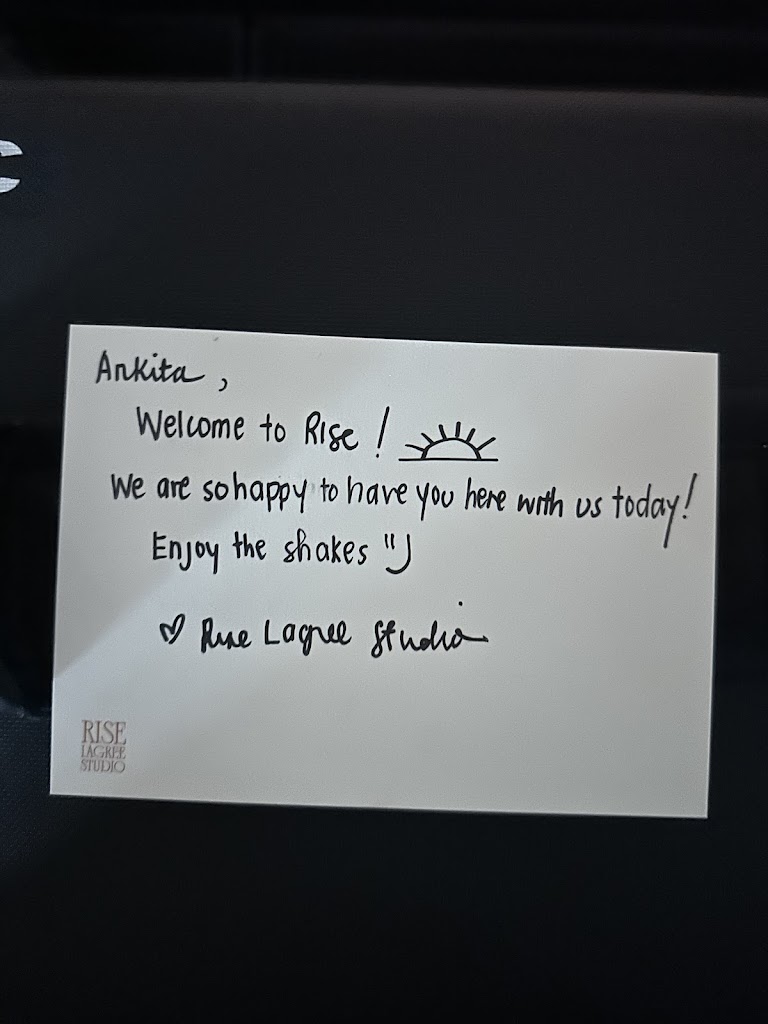 Ankita,
Welcome to Rise!
We are so happy to have you here with us today!
Enjoy the shakes "J
♡ Rise Lagree Studio
RISE
LAGREE
STUDIO